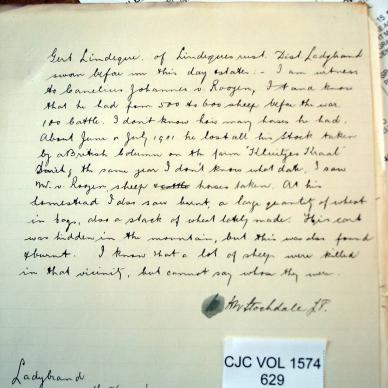 Gert Lindeque. of Lindequesrust. Dist Ladybrand
sworn before me this day states:- I am witness
to Cornelius Johannes v. Rooyen, I stand know
that he had from 500 to 600 sheep before the war
100 cattle. I don't know how many horses he had.
About June or July 1901 he lost all his stock taken
by a British Column on the farm "Kluitjes Kraal"
During the same year I don't know what date, I saw
Mr v. Rooyen, sheep cattle horses taken. At his
homestead I also saw burnt, a large quantity of wheat
in bags, also a stack of wheat lately made. His cart
was hidden in the mountain, but this was also found
& burnt. I know that a lot of sheep were killed
in that vicinity, but cannot say whose they were.
Stockdale J.P.
CJC VOL 1574
629
Ladybrand